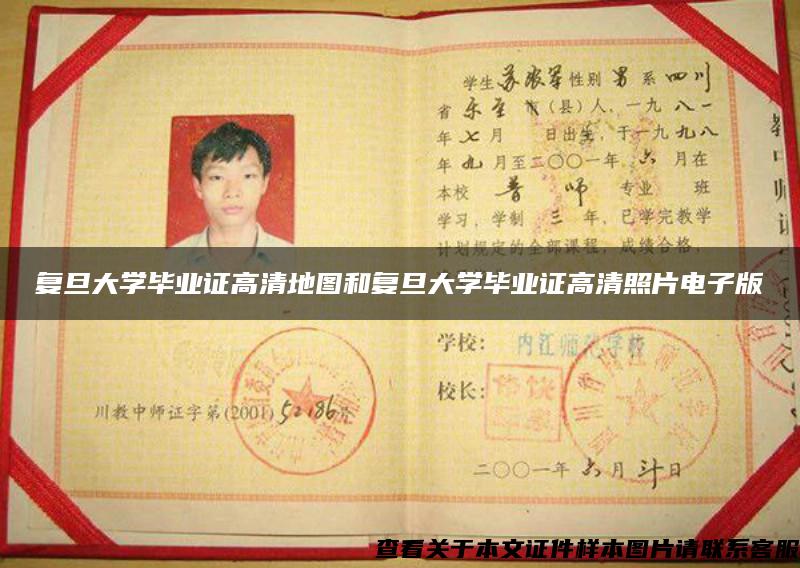 学生 苏 性别 男 系 四川
省 乐至 市(县)人，一九八一
年 七 月 日出生，于一九九八
年 九 月至二〇〇一年 六 月在
本校 普师 专业 班
学习，学制 三 年，已学完教学
计划规定的全部课程，成绩合格，
复旦大学毕业证高清地图和复旦大学毕业证高清照片电子版
学校： 内江师范学校
校长：
川教中师证字第(2001)52186号
二〇〇一年 六 月 日
查看关于本文证件样本图片请联系客服